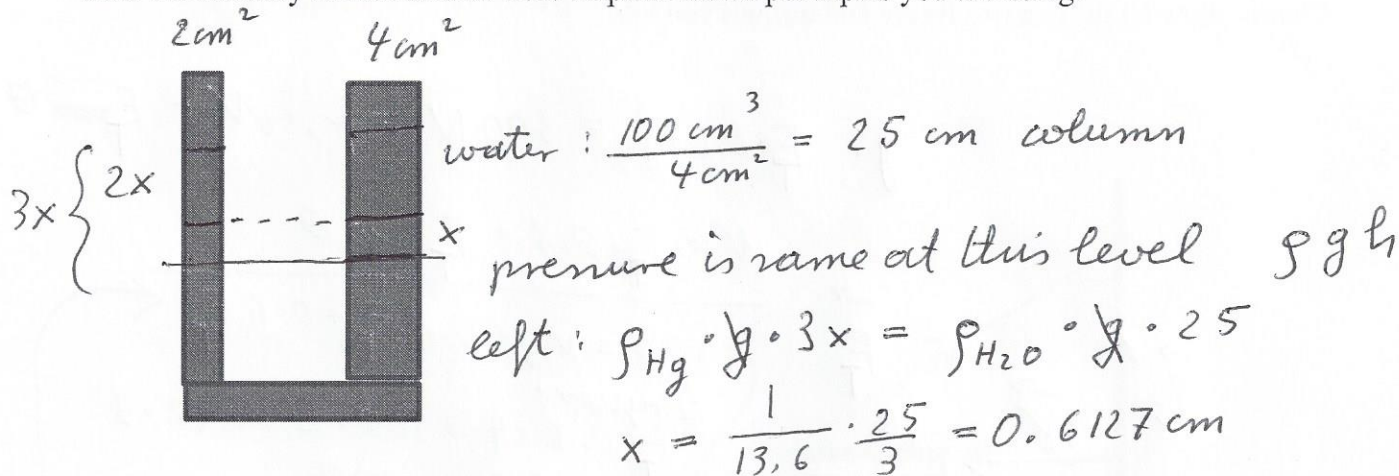 2cm² 4cm²
water : 100 cm³ / 4cm² = 25 cm column
3x { 2x
x
pressure is same at this level ρgh
left : ρHg · g · 3x = ρH₂O · g · 25
x = 1/13,6 · 25/3 = 0.6127 cm